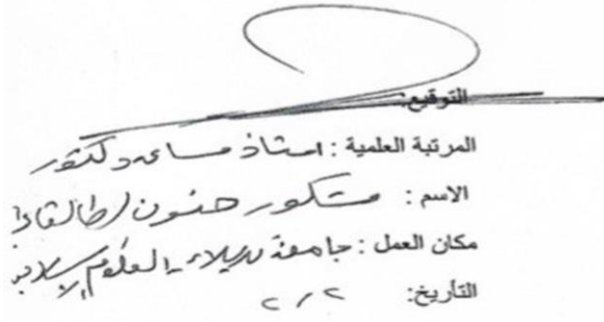 التوقيع:
المرتبة العلمية : استاذ مساعد دكتور
الاسم : مشكور حنون الطالقاني
مكان العمل : جامعة كربلاء - العلوم الإسلامية
التأريخ: ٢ / ٢